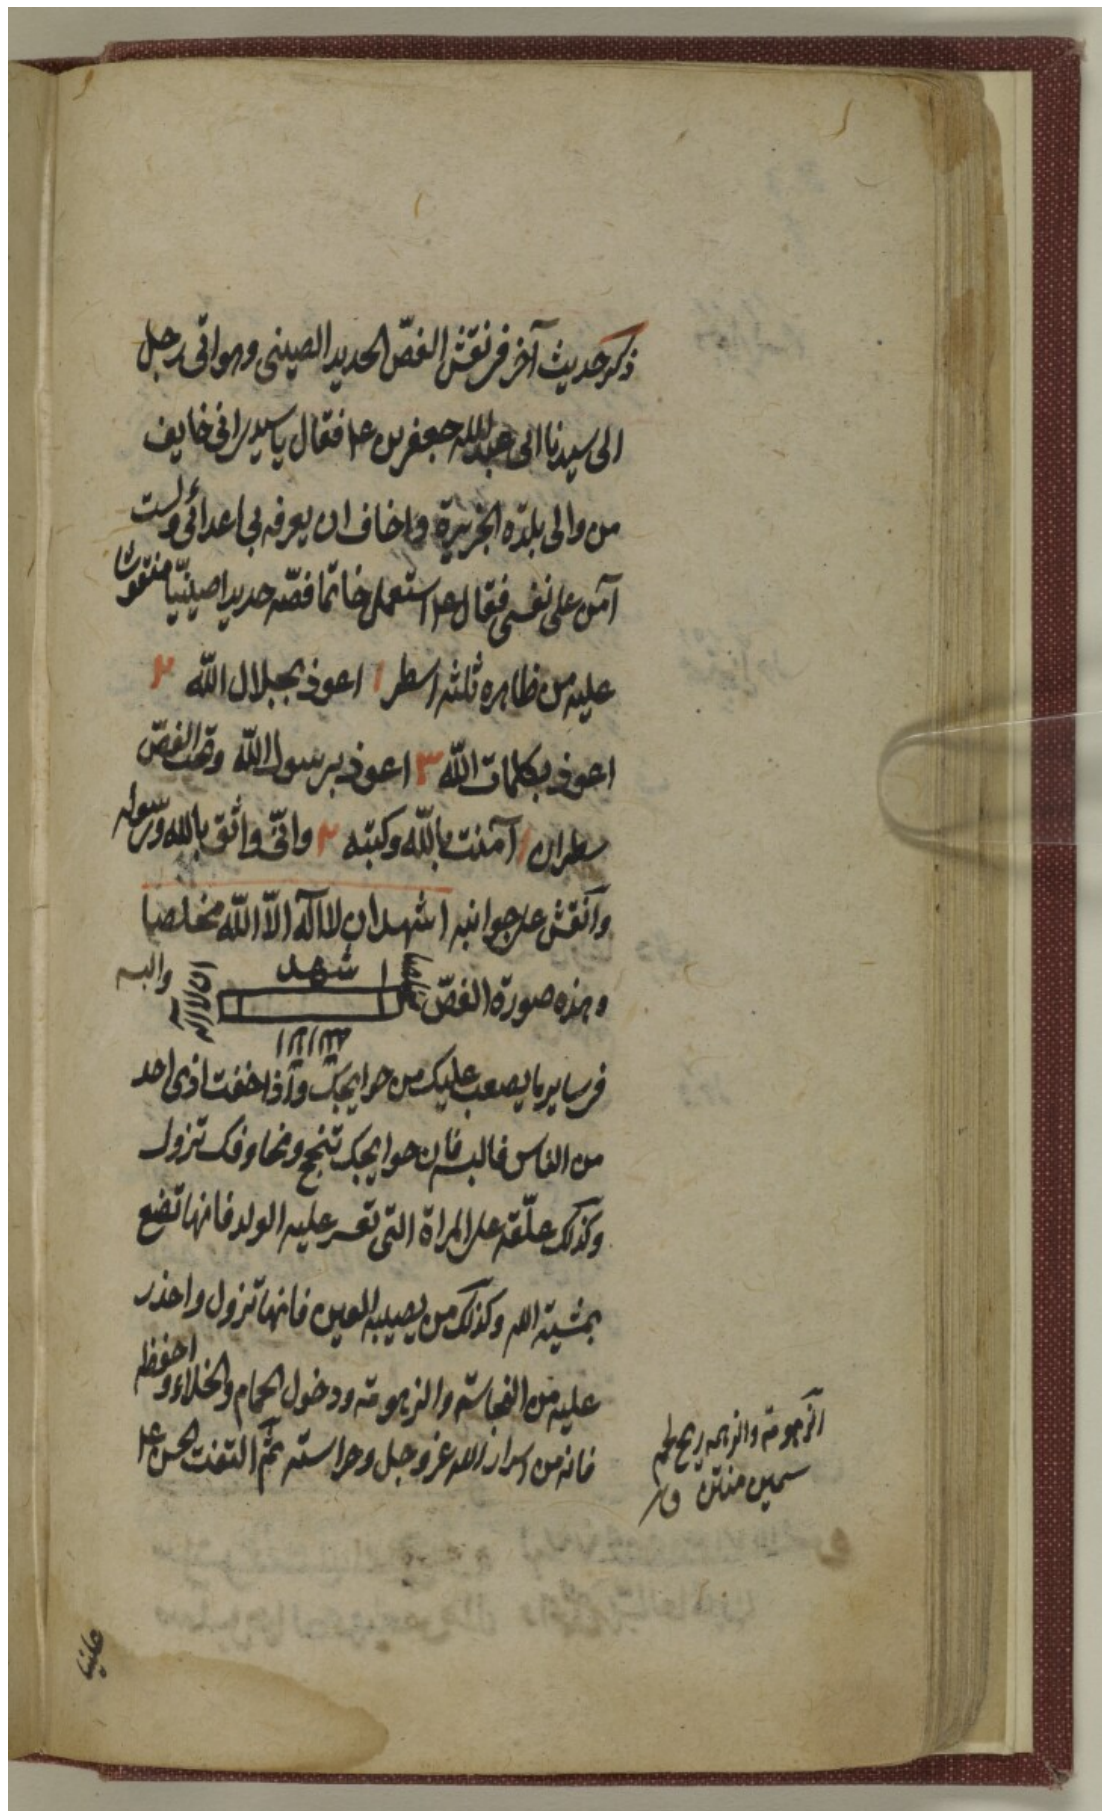 ذكر حديث آخر فى نقش الفصّ الحديد الصينى وهو اتى رجل
الى سيدنا ابى عبد الله جعفر بن ع‍م فقال يا سيدى انى خايف
من والى بلدة الجزيرة واخاف ان يعرفه بى اعدائى ولست
آمن على نفسى فقال ع‍م استعمل خاتما فصّه حديدا صينيّا منقوشا
عليه من ظاهره ثلثه اسطر ١ اعوذ بجلال اللّه ٢
اعوذ بكلمات اللّه ٣ اعوذ برسول اللّه وتحت الفصّ
سطران ١ آمنت باللّه وكتبه ٢ وانّى واثق بالله ورسوله
وآنقش على جوانبه اشهد ان لا اله الاّ اللّه مخلصا
وهذه صورة الفصّ مخلصا ا شهد ان لا اله الا الله والبسه
فى ساير ما يصعب عليك من حوايجك وآذا خفت اذى احد
من الناس فالبسه فان حوايجك تنجح ومخاوفك تزول
وكذلك علّقه على المراة التى تعسر عليه الولد فانها تضع
بمشيته الله وكذلك من يصيبه العين فانها تزول واحذر
عليه من النجاسة والزهومة ودخول الحمام والخلاء واحفظه
فانه من اسرار الله عزوجل وحراسته ثمّ التفت الحسن ع‍م
الزهومة والزهمه ريح لحم
سمين منتن ق‍م
علينا